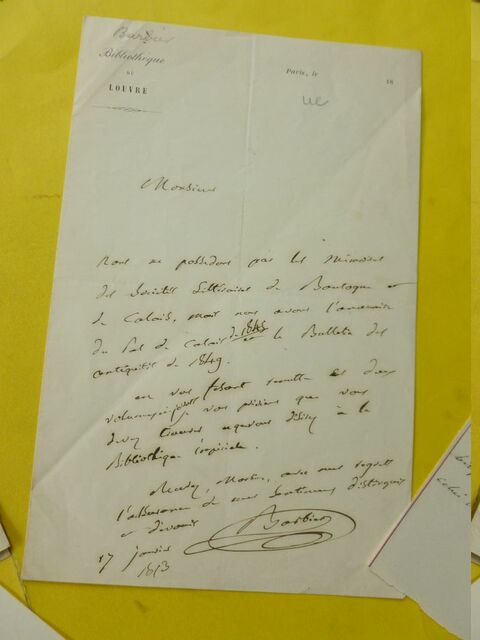 Barbier
Bibliothèque
DU
LOUVRE
Paris, le 18
Monsieur
Nous ne possédons pas les Mémoires
des Sociétés littéraires de Boulogne et
de Calais, mais nous avons l'annuaire
du Pas de Calais de 1845 et le Bulletin des
antiquités de 1849.
en vos faisant remettre ces deux
volumes je vous préviens que vous
devez trouver à la
Bibliothèque Impériale.
avec mes regrets
l'assurance de mes sentiments distingués
et dévoués
Barbier
17 janvier
1853